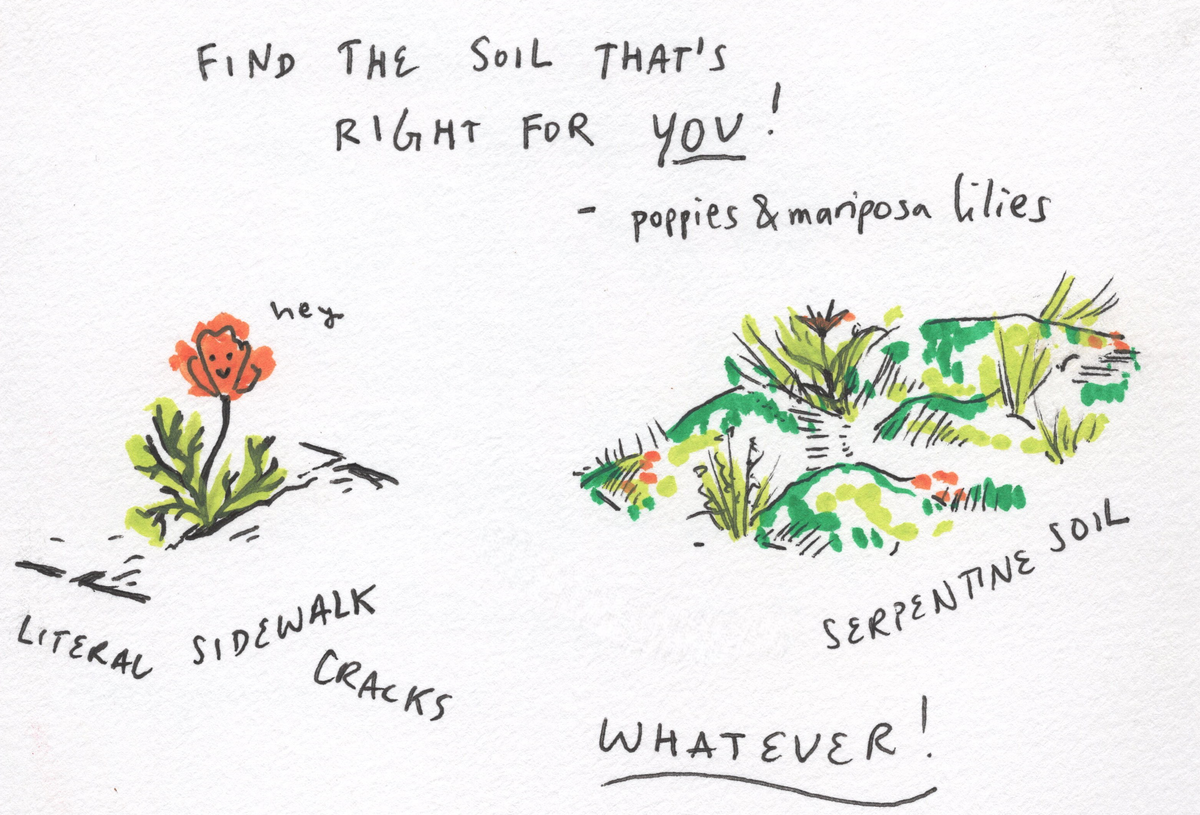 FIND THE SOIL THAT'S
RIGHT FOR YOU!
- poppies & mariposa lilies
hey
LITERAL SIDEWALK
CRACKS
SERPENTINE SOIL
WHATEVER!